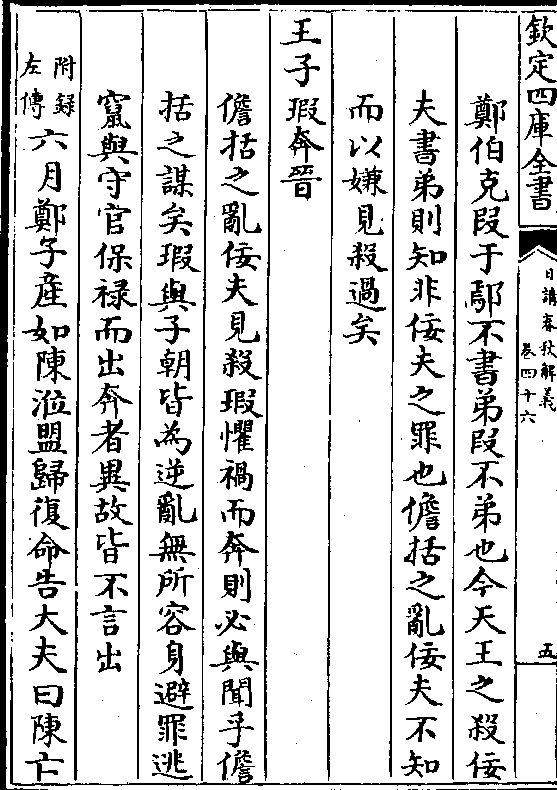 欽定四庫全書
日講春秋解義
卷四十六
五
鄭伯克段于鄢不書弟段不弟也今天王之殺佞
夫書弟則知非佞夫之罪也儋括之亂佞夫不知
而以嫌見殺過矣
王子瑕奔晉
儋括之亂佞夫見殺瑕懼禍而奔則必與聞乎儋
括之謀矣瑕與子朝皆為逆亂無所容身避罪逃
竄與守官保禄而出奔者異故皆不言出
附録
左傳
六月鄭子產如陳涖盟歸復命告大夫曰陳亡